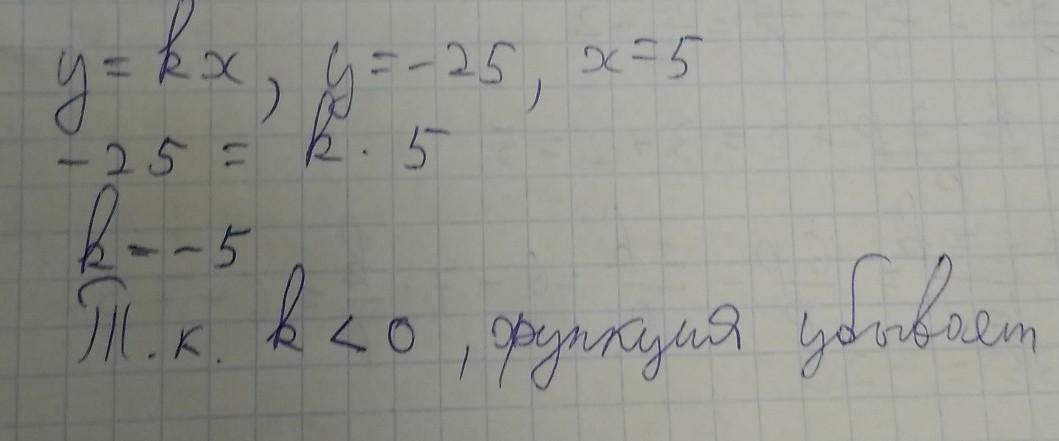 y = kx, y = -25, x = 5
-25 = k · 5
k = -5
Т. к. k < 0, функция убывает